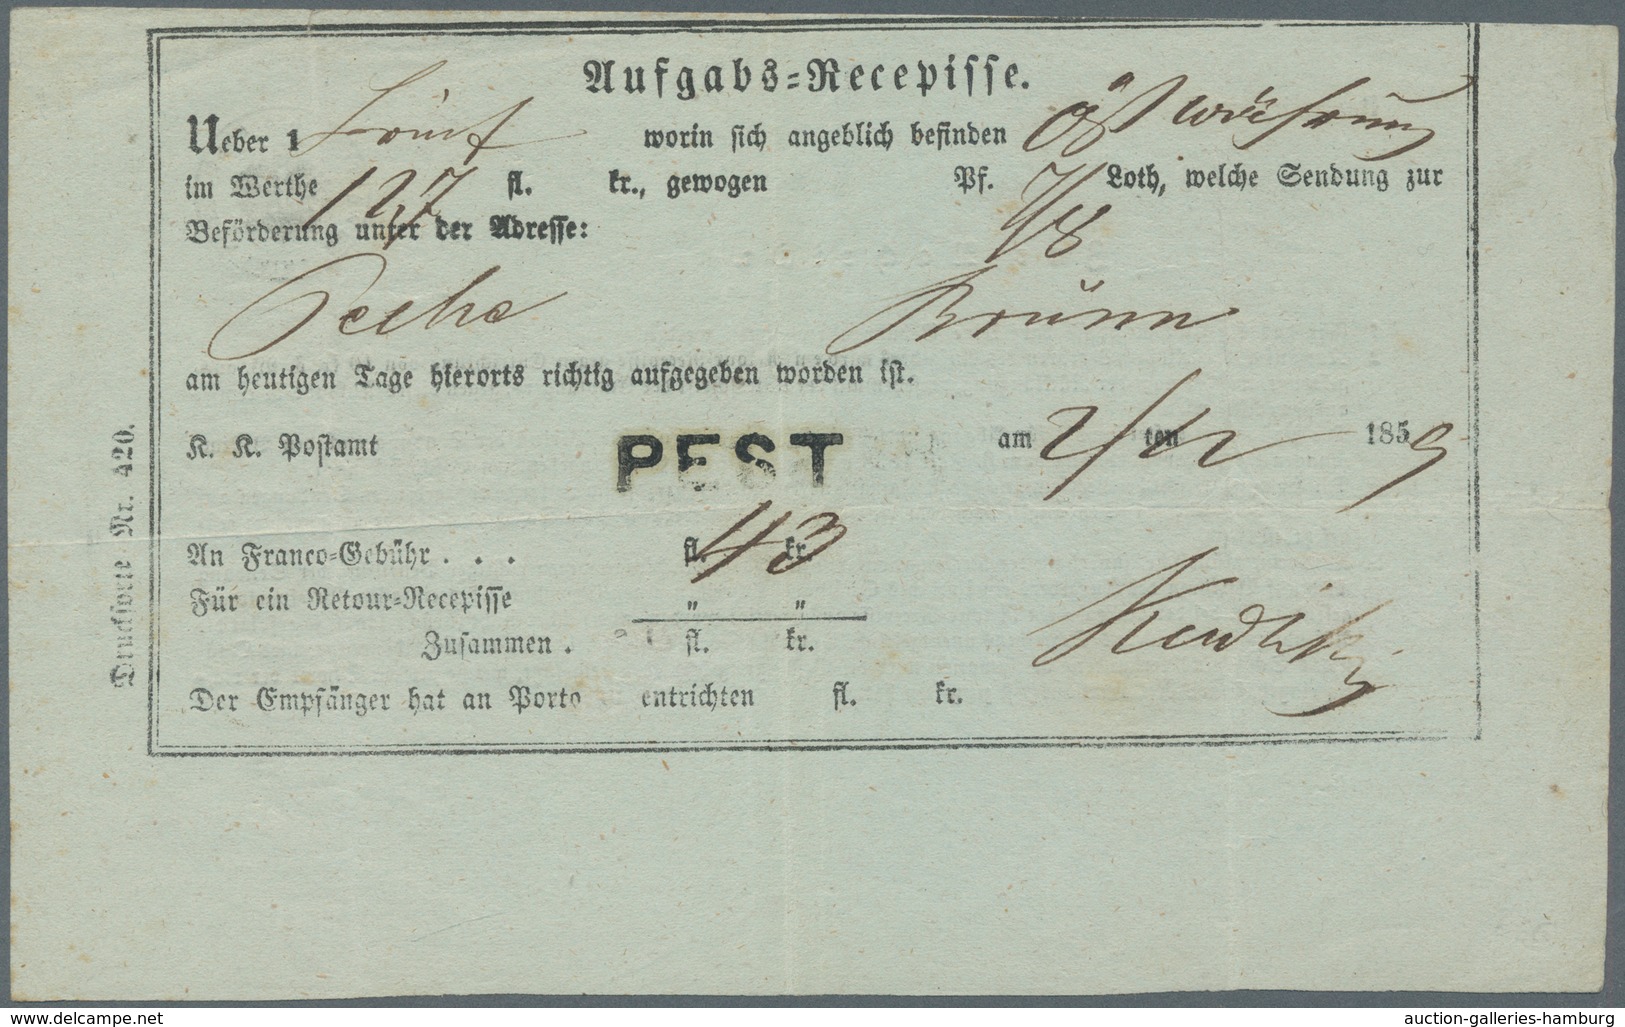 Aufgabs=Recepisse.
Ueber 1 worin sich angeblich befinden öst währung
im Werthe 127 fl. kr., gewogen Pf. 7/8 Loth, welche Sendung zur
Beförderung unter der Adresse:
Brünn
am heutigen Tage hierorts richtig aufgegeben worden ist.
K. K. Postamt PEST am 2/12 ten 1859
An Franco=Gebühr . . . fl. 43 kr.
Für ein Retour=Recepisse " "
Zusammen . fl. kr.
Der Empfänger hat an Porto entrichten fl. kr.
Drucksorte Nr. 420.
www.delcampe.net
auction-galleries-hamburg